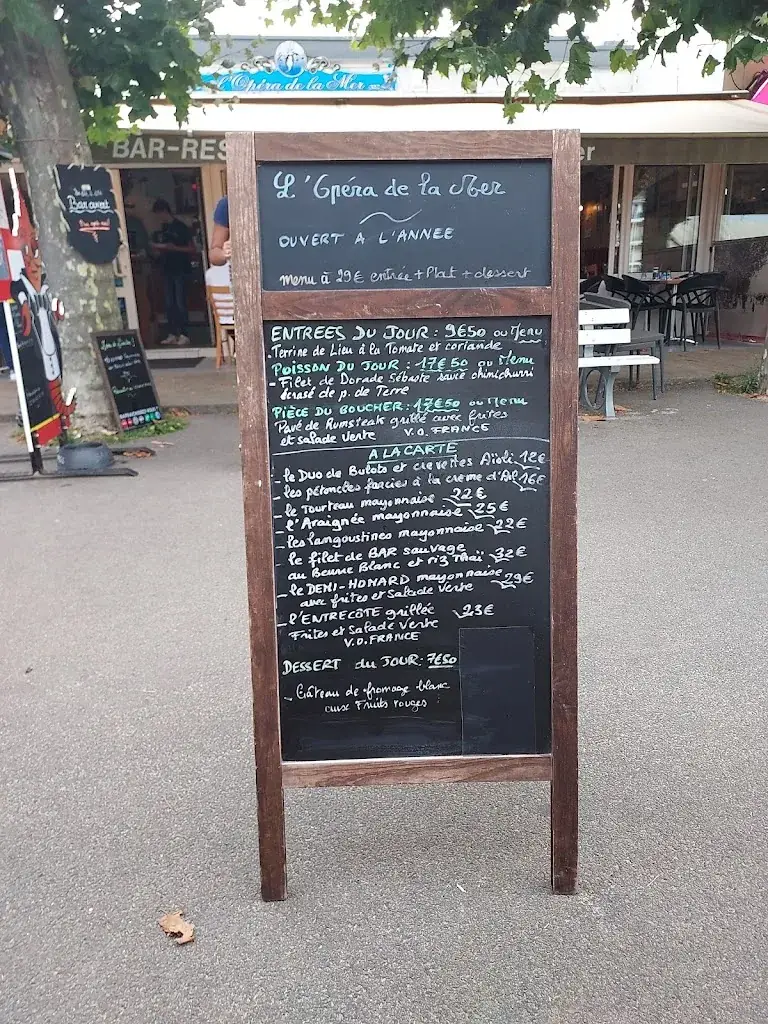 L'Opéra de la Mer
BAR-RES
er
Bar ouvert
L'Opéra de la Mer
OUVERT A L'ANNEE
menu à 29€ entrée + Plat + dessert
ENTREES DU JOUR : 9€50 ou Menu
- Terrine de Lieu à la Tomate et coriande
POISSON DU JOUR : 17€50 ou Menu
- Filet de Dorade Sébaste sauce chimichurri
écrasé de p. de Terre
PIÈCE DU BOUCHER : 17€50 ou Menu
Pavé de Rumsteak grillé avec frites
et salade Verte V.O. FRANCE
A LA CARTE
- le Duo de Bulots et crevettes Aïoli 12€
- les pétoncles farcies à la crème d'Ail 16€
- le Tourteau mayonnaise 22€
- l'Araignée mayonnaise 25€
- les langoustines mayonnaise 22€
- le filet de BAR sauvage 32€
au Beurre Blanc et riz Thaï
- le DEMI-HOMARD mayonnaise 29€
avec frites et Salade Verte
- l'ENTRECÔTE grillée 23€
Frites et Salade Verte
V.O. FRANCE
DESSERT du JOUR : 7€50
- Gâteau de fromage blanc
aux Fruits rouges